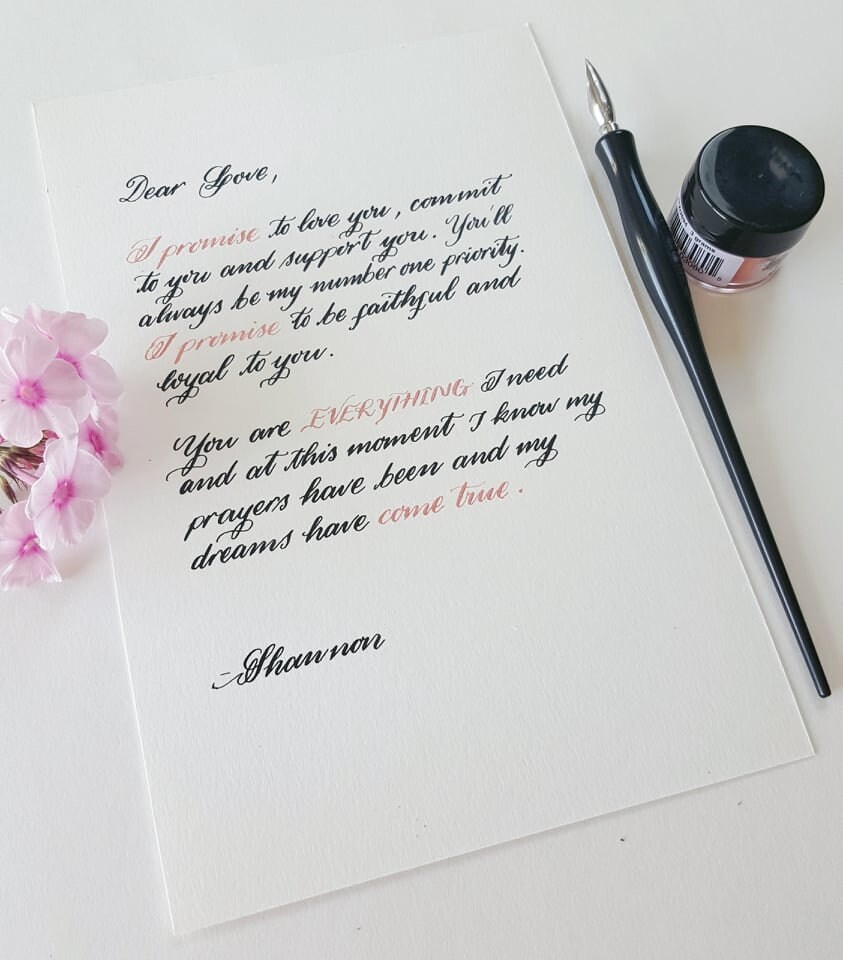 Dear Love,
I promise to love you, commit
to you and support you. You'll
always be my number one priority.
I promise to be faithful and
loyal to you.
You are EVERYTHING I need
and at this moment I know my
prayers have been and my
dreams have come true.
- Shannon